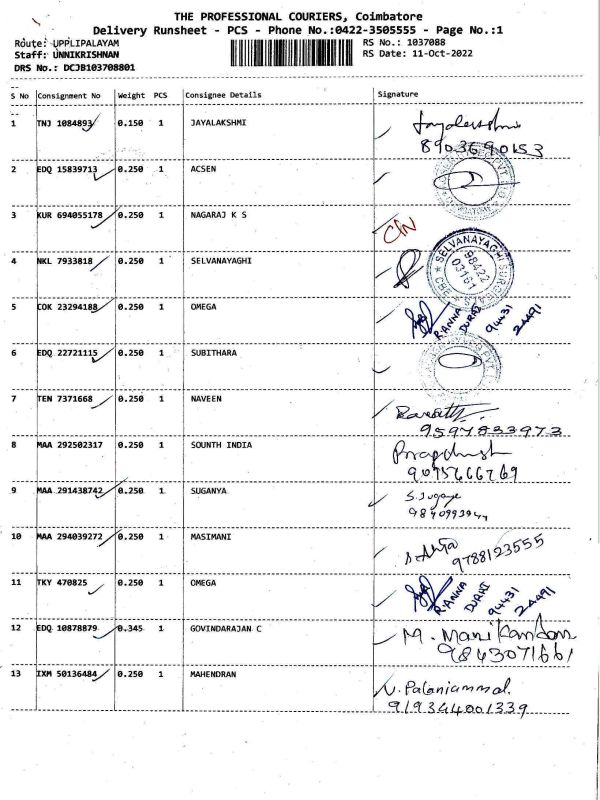 THE PROFESSIONAL COURIERS, Coimbatore
Delivery Runsheet - PCS - Phone No.:0422-3505555 - Page No.:1
Route: UPPLIPALAYAM
RS No.: 1037088
Staff: UNNIKRISHNAN
RS Date: 11-Oct-2022
DRS No.: DCJB103708801
S No Consignment No Weight PCS Consignee Details Signature
1 TNJ 1084893 0.150 1 JAYALAKSHMI Jayalakshmi
8903690153
2 EDQ 15839713 0.250 1 ACSEN
3 KUR 694055178 0.250 1 NAGARAJ K S C/N
4 NKL 7933818 0.250 1 SELVANAYAGHI
SELVANAYAGHI
98422
03161
CBE
5 COK 23294188 0.250 1 OMEGA
R.ANNA
DURAI
94431
24491
6 EDQ 22721115 0.250 1 SUBITHARA
7 TEN 7371668 0.250 1 NAVEEN
9597833973
8 MAA 292502317 0.250 1 SOUNTH INDIA
9095666769
9 MAA 291438742 0.250 1 SUGANYA
S.Sugaya
10 MAA 294039272 0.250 1 MASIMANI
9788123555
11 TKY 470825 0.250 1 OMEGA
R.ANNA
DURAI
94431
24491
12 EDQ 10878879 0.345 1 GOVINDARAJAN C M. Manikandan
9843071661
13 IXM 50136484 0.250 1 MAHENDRAN N. Palaniammal.
919344001339